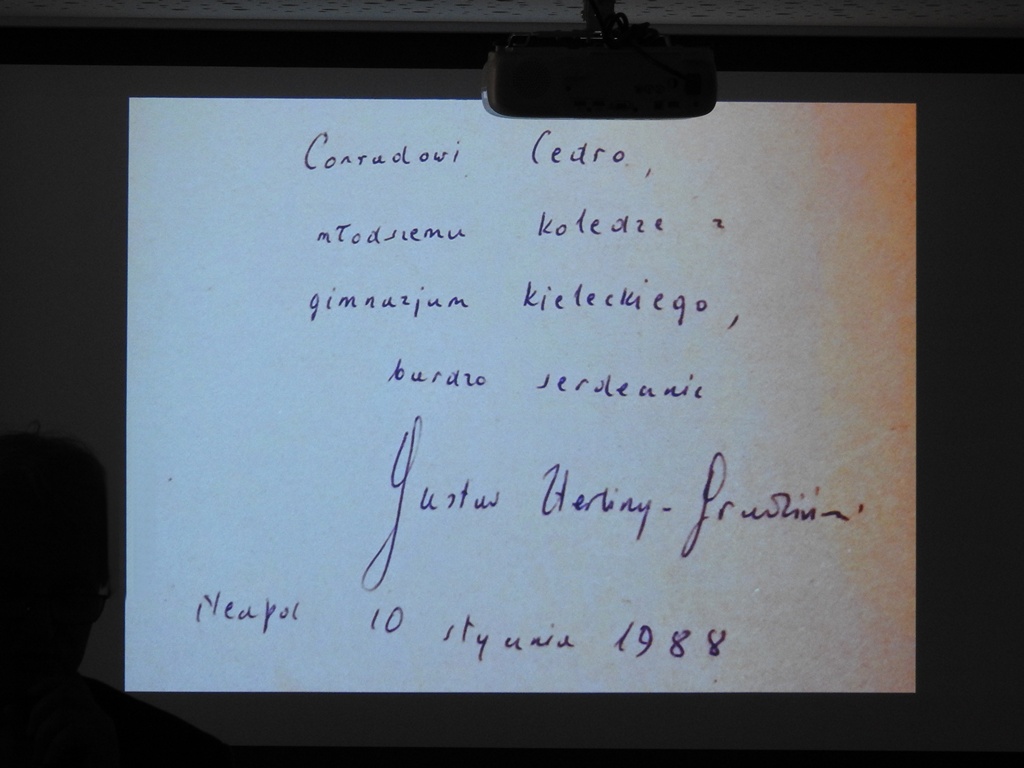 Conradowi Cedro,
młodszemu koledze z
gimnazjum kieleckiego,
bardzo serdecznie
Gustaw Herling-Grudziński
Neapol 10 stycznia 1988